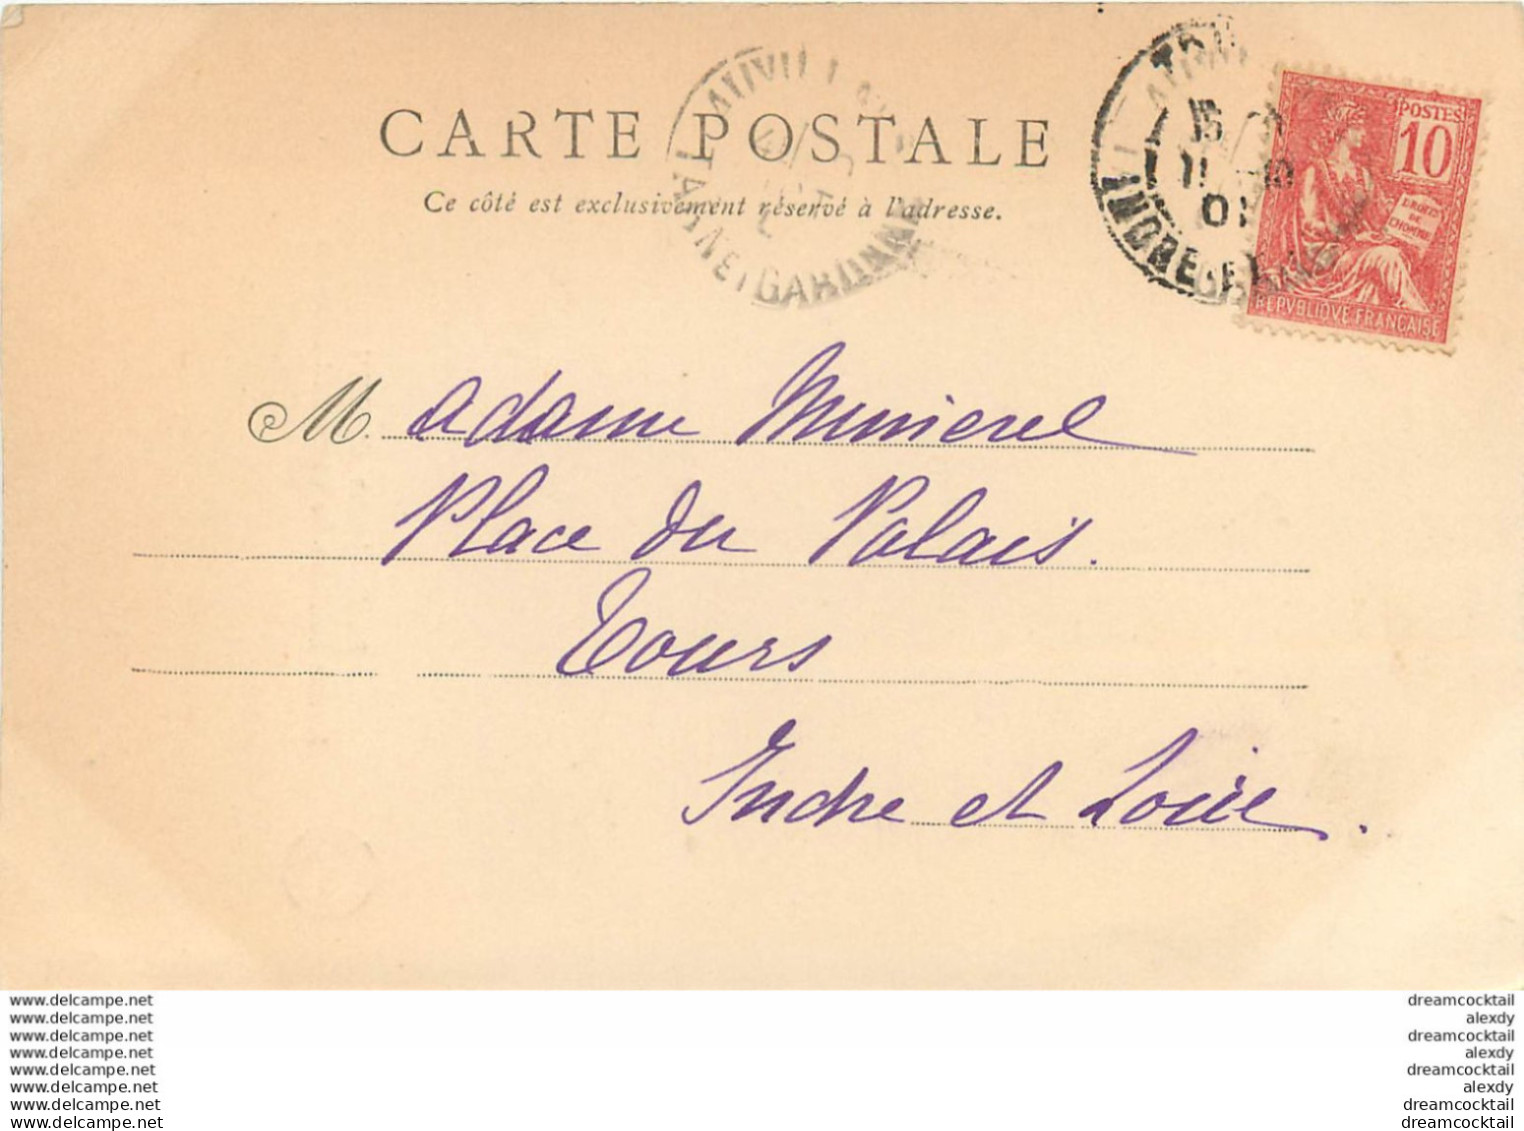 CARTE POSTALE
Ce côté est exclusivement réservé à l'adresse.
TARN ET GARONNE
15
11 -10
01
INDRE-ET-
POSTES
10
DROITS
DE
L'HOMME
REPVBLIQVE FRANÇAISE
M. adame
Place du Palais.
Tours
Indre et Loire.
www.delcampe.net
www.delcampe.net
www.delcampe.net
www.delcampe.net
www.delcampe.net
www.delcampe.net
www.delcampe.net
www.delcampe.net
dreamcocktail
alexdy
dreamcocktail
alexdy
dreamcocktail
alexdy
dreamcocktail
dreamcocktail